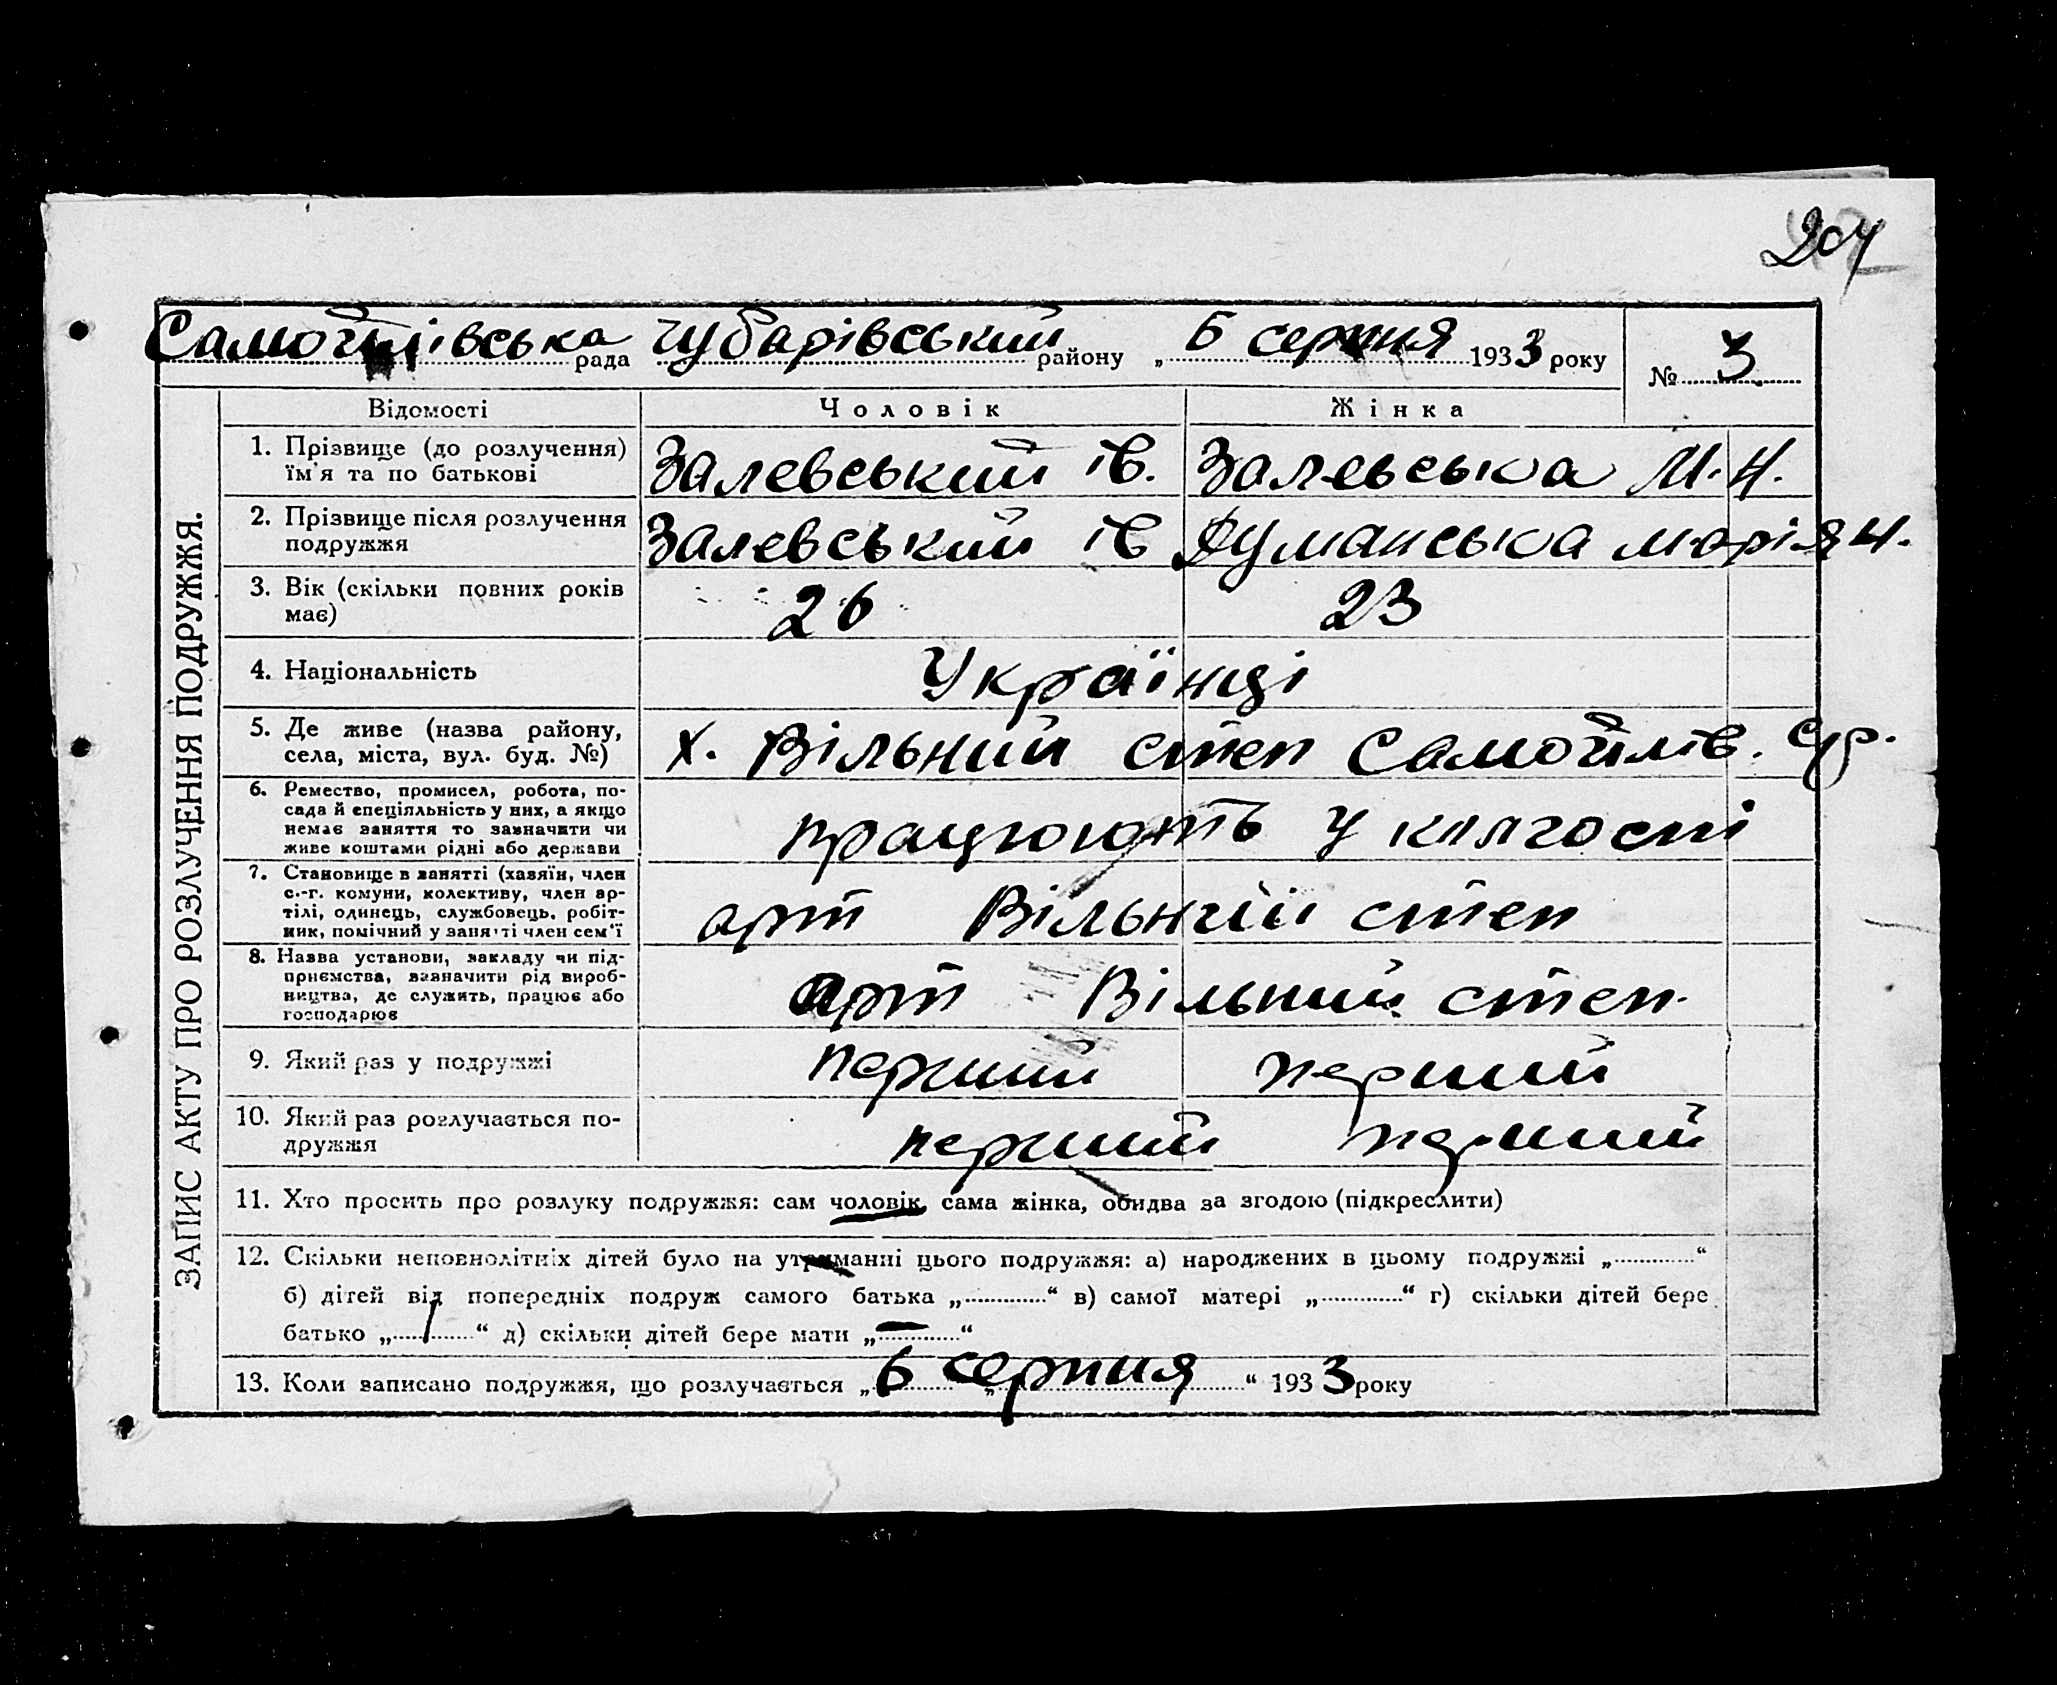 204
Самойлівська рада Чубарівський району „ 6 серпня 1933 року № 3
ЗАПИС АКТУ ПРО РОЗЛУЧЕННЯ ПОДРУЖЖЯ.
Відомості Чоловік Жінка
1. Прізвище (до розлучення)
їм'я та по батькові
Залевський Ів. Залевська М. Н.
2. Прізвище після розлучення
подружжя
Залевський Ів Думанська Марія Н.
3. Вік (скільки повних років
має)
26 23
4. Національність Українці
5. Де живе (назва району,
села, міста, вул. буд. №)
х. Вільний степ Самойлів. с/р.
6. Ремество, промисел, робота, по-
сада й спеціяльність у них, а якщо
немає заняття то зазначити чи
живе коштами рідні або держави
працюють у колгоспі
7. Становище в занятті (хазяїн, член
с.-г. комуни, колективу, член ар-
тілі, одинець, службовець, робіт-
ник, помічний у занятті член сем'ї
арт Вільний степ
8. Назва установи, закладу чи під-
приємства, зазначити рід вироб-
ництва, де служить, працює або
господарює
арт Вільний степ.
9. Який раз у подружжі перший перший
10. Який раз розлучається по-
дружжя
перший перший
11. Хто просить про розлуку подружжя: сам чоловік, сама жінка, обидва за згодою (підкреслити)
12. Скільки неповнолітніх дітей було на утриманні цього подружжя: а) народжених в цьому подружжі „ “
б) дітей від попередніх подруж самого батька „ “ в) самої матері „ “ г) скільки дітей бере
батько „ 1 “ д) скільки дітей бере мати „ — “
13. Коли записано подружжя, що розлучається „ 6 „ серпня “ 1933 року